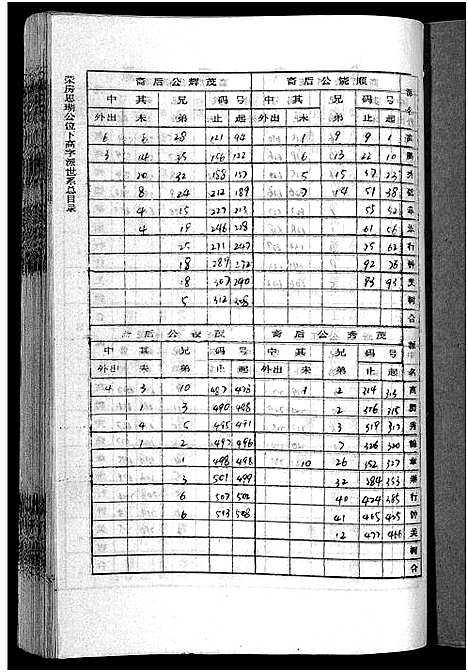 荣房思瑚公位下高字派世系总目录
顺公后裔 茂辉公后裔
号码 兄 其中 号码 兄 其中
起 止 弟 未 外出 起 止 弟 未 外出
高 1 9 9 1 94 121 28 6 6
鹏 10 22 13 6 122 156 35 14 3
秀 23 37 15 5 157 188 32 20
38 51 14 7 189 212 24 8
213 227 15 4
承 56 61 228 246 19 4
行 62 75 247 271 25
钟 76 92 272 289 18
美 93 290 307 18
树 308 312 5
合
茂秀公后裔 茂公后裔
号码 兄 其中 号码 兄 其中
名 起 止 弟 未 外出 起 止 弟 未 外出
高 313 314 2 1 478 487 10 3 4
鹏 315 316 2 488 490 3 1
秀 317 319 3 491 495 5 4
320 326 7 496 497 2 1
327 352 26 10 498 498 1
承 353 384 32 499 501 3
行 385 424 40 502 507 6
钟 425 465 41 508 513 6
美 466 477 12
树
合